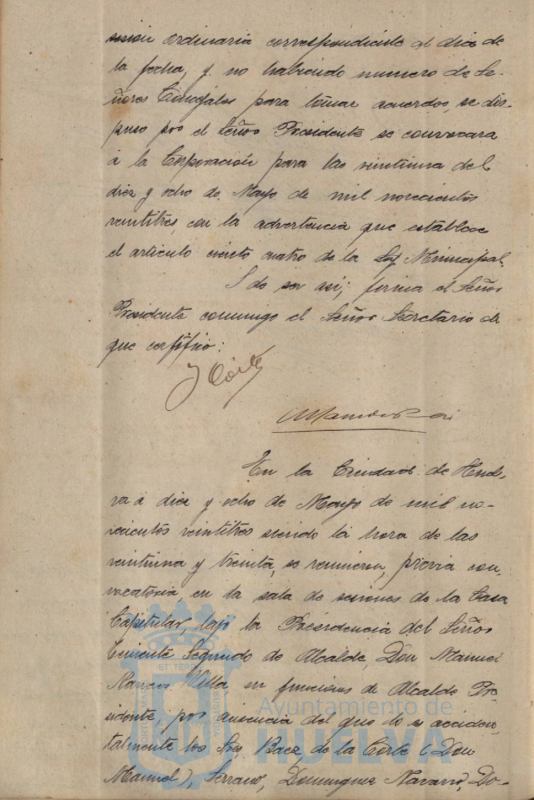 sesión ordinaria correspondiente al día de
la fecha, y no habiendo número de Se-
ñores Concejales para tomar acuerdos, se dis-
puso por el Señor Presidente se convocara
á la Corporación para las veintiuna del
diez y ocho de Mayo de mil novecientos
veintitres con la advertencia que establece
el artículo ciento cuatro de la Ley Municipal.
Y de ser así; firma el Señor
Presidente conmigo el Señor Secretario de
que certifico:
En la Ciudad de Huel-
va á diez y ocho de Mayo de mil no-
vecientos veintitres siendo la hora de las
veintiuna y treinta, se reunieron, previa con-
vocatoria, en la sala de sesiones de la Casa
Capitular, bajo la Presidencia del Señor
Teniente Segundo de Alcalde, Don Manuel
en funciones de Alcalde Pre-
sidente, por ausencia del que lo es acciden-
talmente los Sres. Baez, de la Corte (Don
Manuel), Serrano, Dominguez Navarro, Do-
Ayuntamiento de
HUELVA